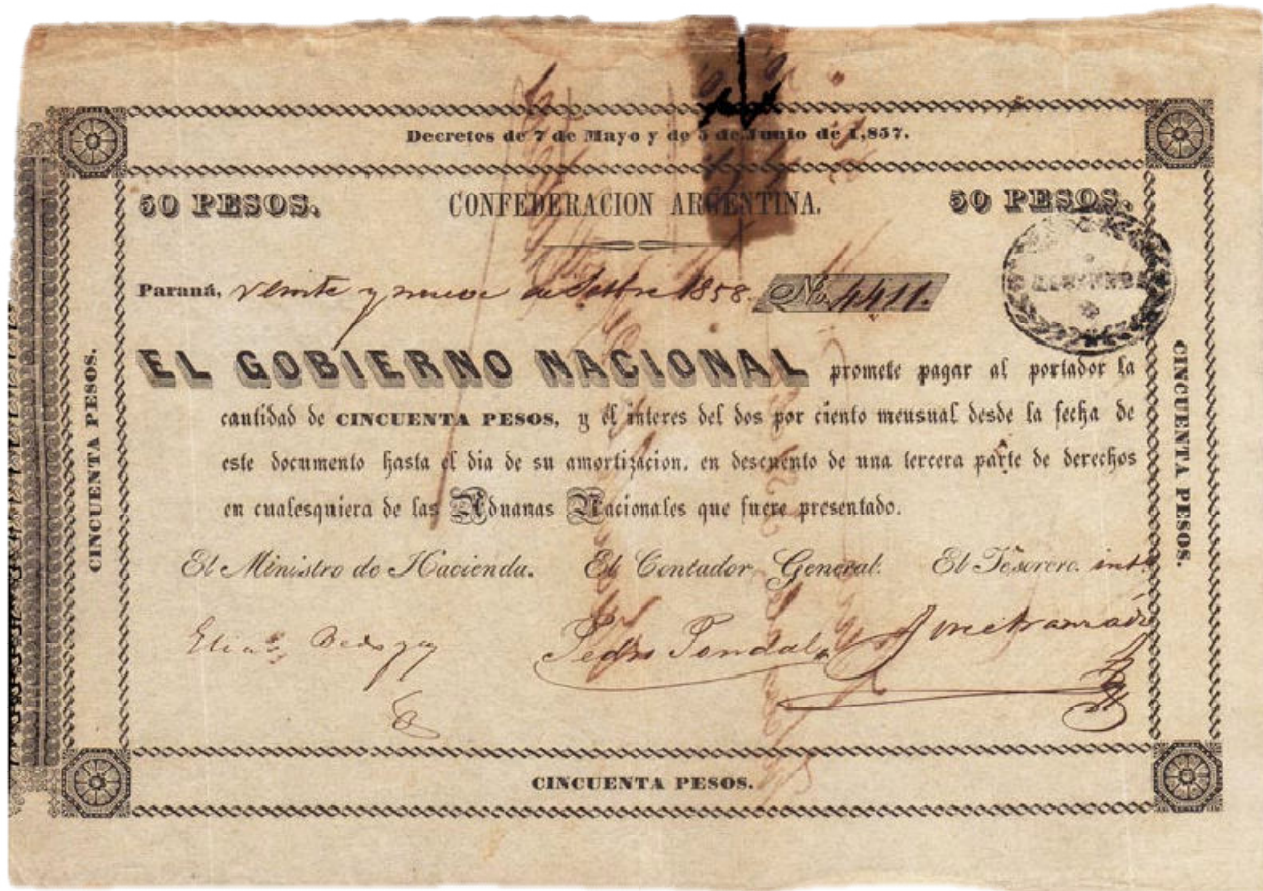 Decretos de 7 de Mayo y de 5 de Junio de 1,857.
50 PESOS. CONFEDERACION ARGENTINA. 50 PESOS.
Paraná, veinte y nueve de Setbre 1858. No. 4411.
EL GOBIERNO NACIONAL promete pagar al portador la
cantidad de CINCUENTA PESOS, y el interes del dos por ciento mensual desde la fecha de
este documento hasta el dia de su amortizacion, en descuento de una tercera parte de derechos
en cualesquiera de las Aduanas Nacionales que fuere presentado.
El Ministro de Hacienda. El Contador General. El Tesorero. int.
Elias Bedoya Pedro Pondal
CINCUENTA PESOS.
CINCUENTA PESOS.
CINCUENTA PESOS.